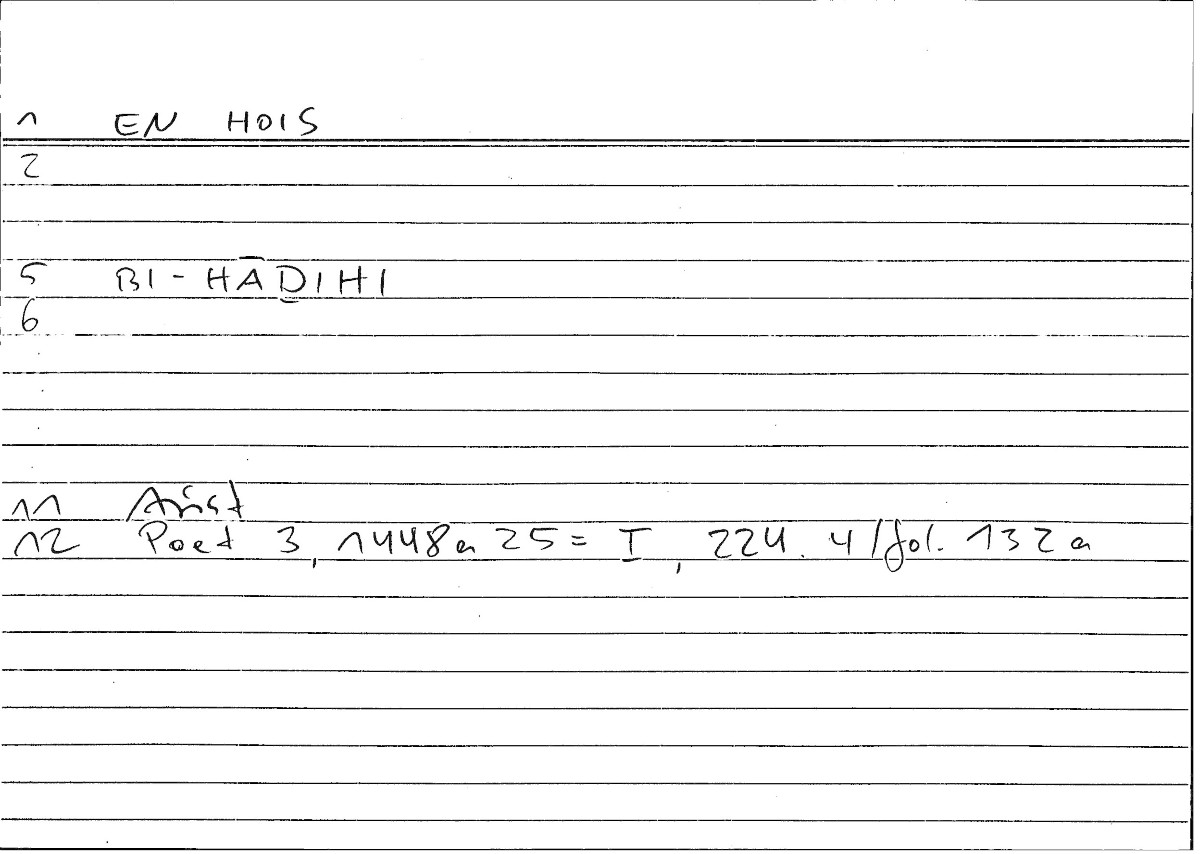 1 EN HOIS
2
5 BI-HĀḎIHI
6
11 Arist
12 Poet 3, 1448a 25 = I, 224.4/fol. 132a